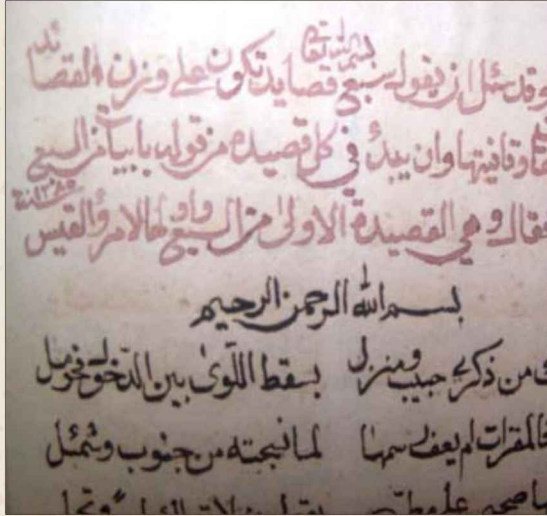 وقد سئل ان يقول سبع قصايد تكون على وزن القصائد
وقافيتها وان يبدأ في كل قصيدة من قوله بابيات من السبع
فقال وهي القصيدة الاولى من السبع واولها لامرؤ القيس
بسم الله الرحمن الرحيم
من ذكرى حبيب ومنزل بسقط اللوى بين الدخول فحومل
فالمقرات لم يعف رسمها لما نسجته من جنوب وشمئل